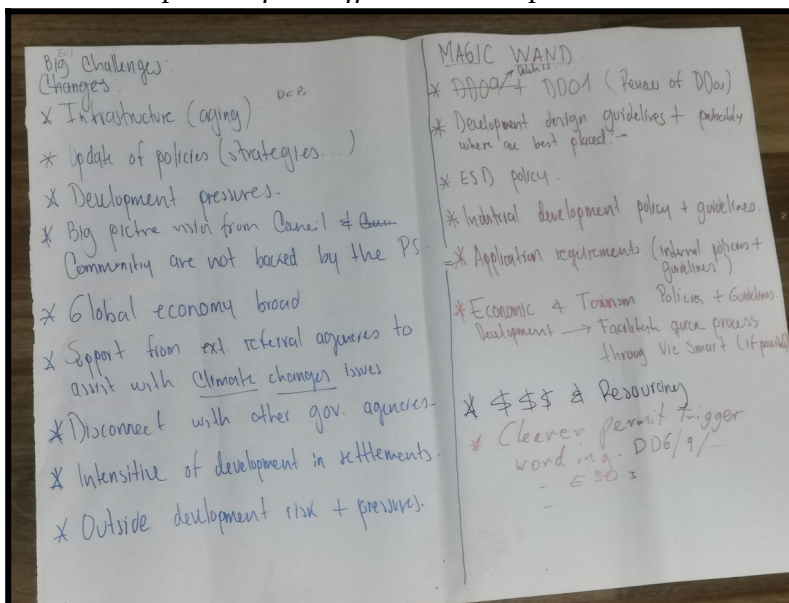 Big Challenges:
Changes:
* Infrastructure (aging) DCPs
* Update of policies (strategies...)
* Development pressures.
* Big pictre vision from Council &
Community are not backed by the PS.
* Global economy broad
* Support from ext. referral agencies to
assist with Climate changes issues
* Disconnect with other gov. agencies-
* Intensitive of development in settlements.
* Outside development risk + pressures.
MAGIC WAND.
* DDO9 + DDO1 (Review of DDOs)
* Development design guidelines + probably
where are best placed.-
* ESD policy.
* Industrial development policy + guidelines.
=* Application requirements. (internal policies +
guidelines)
* Economic & Tourism Policies + Guidelines.
Development → Facilitate process
through Vic Smart (if possible)
* $$$ & Resourcing
* Clearer permit trigger
wording. DD6/9/...
- ESO3
-